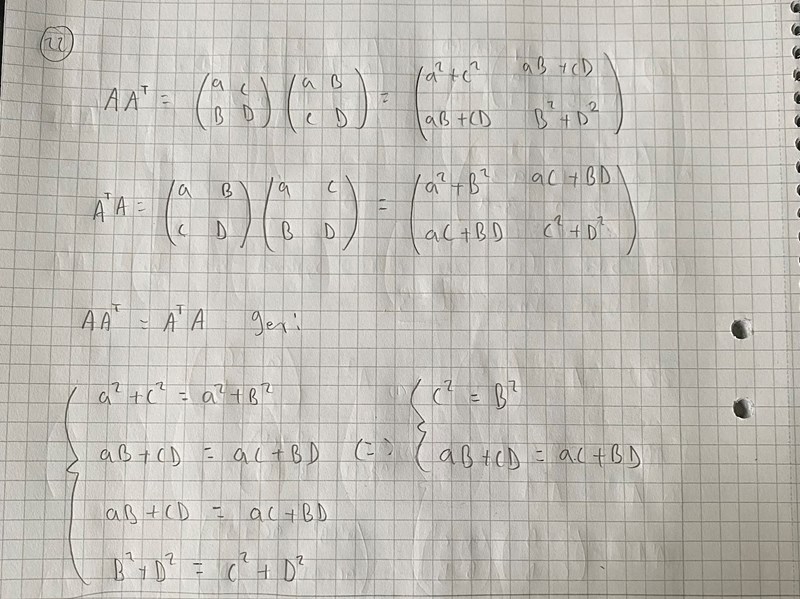 22
AAᵀ = (a c; B D) (a B; c D) = (a² + c² aB + cD; aB + CD B² + D²)
AᵀA = (a B; c D) (a c; B D) = (a² + B² ac + BD; ac + BD c² + D²)
AAᵀ = AᵀA ger:
{ a² + c² = a² + B² { c² = B²
aB + CD = ac + BD (=) aB + CD = ac + BD
aB + CD = ac + BD
B² + D² = c² + D²